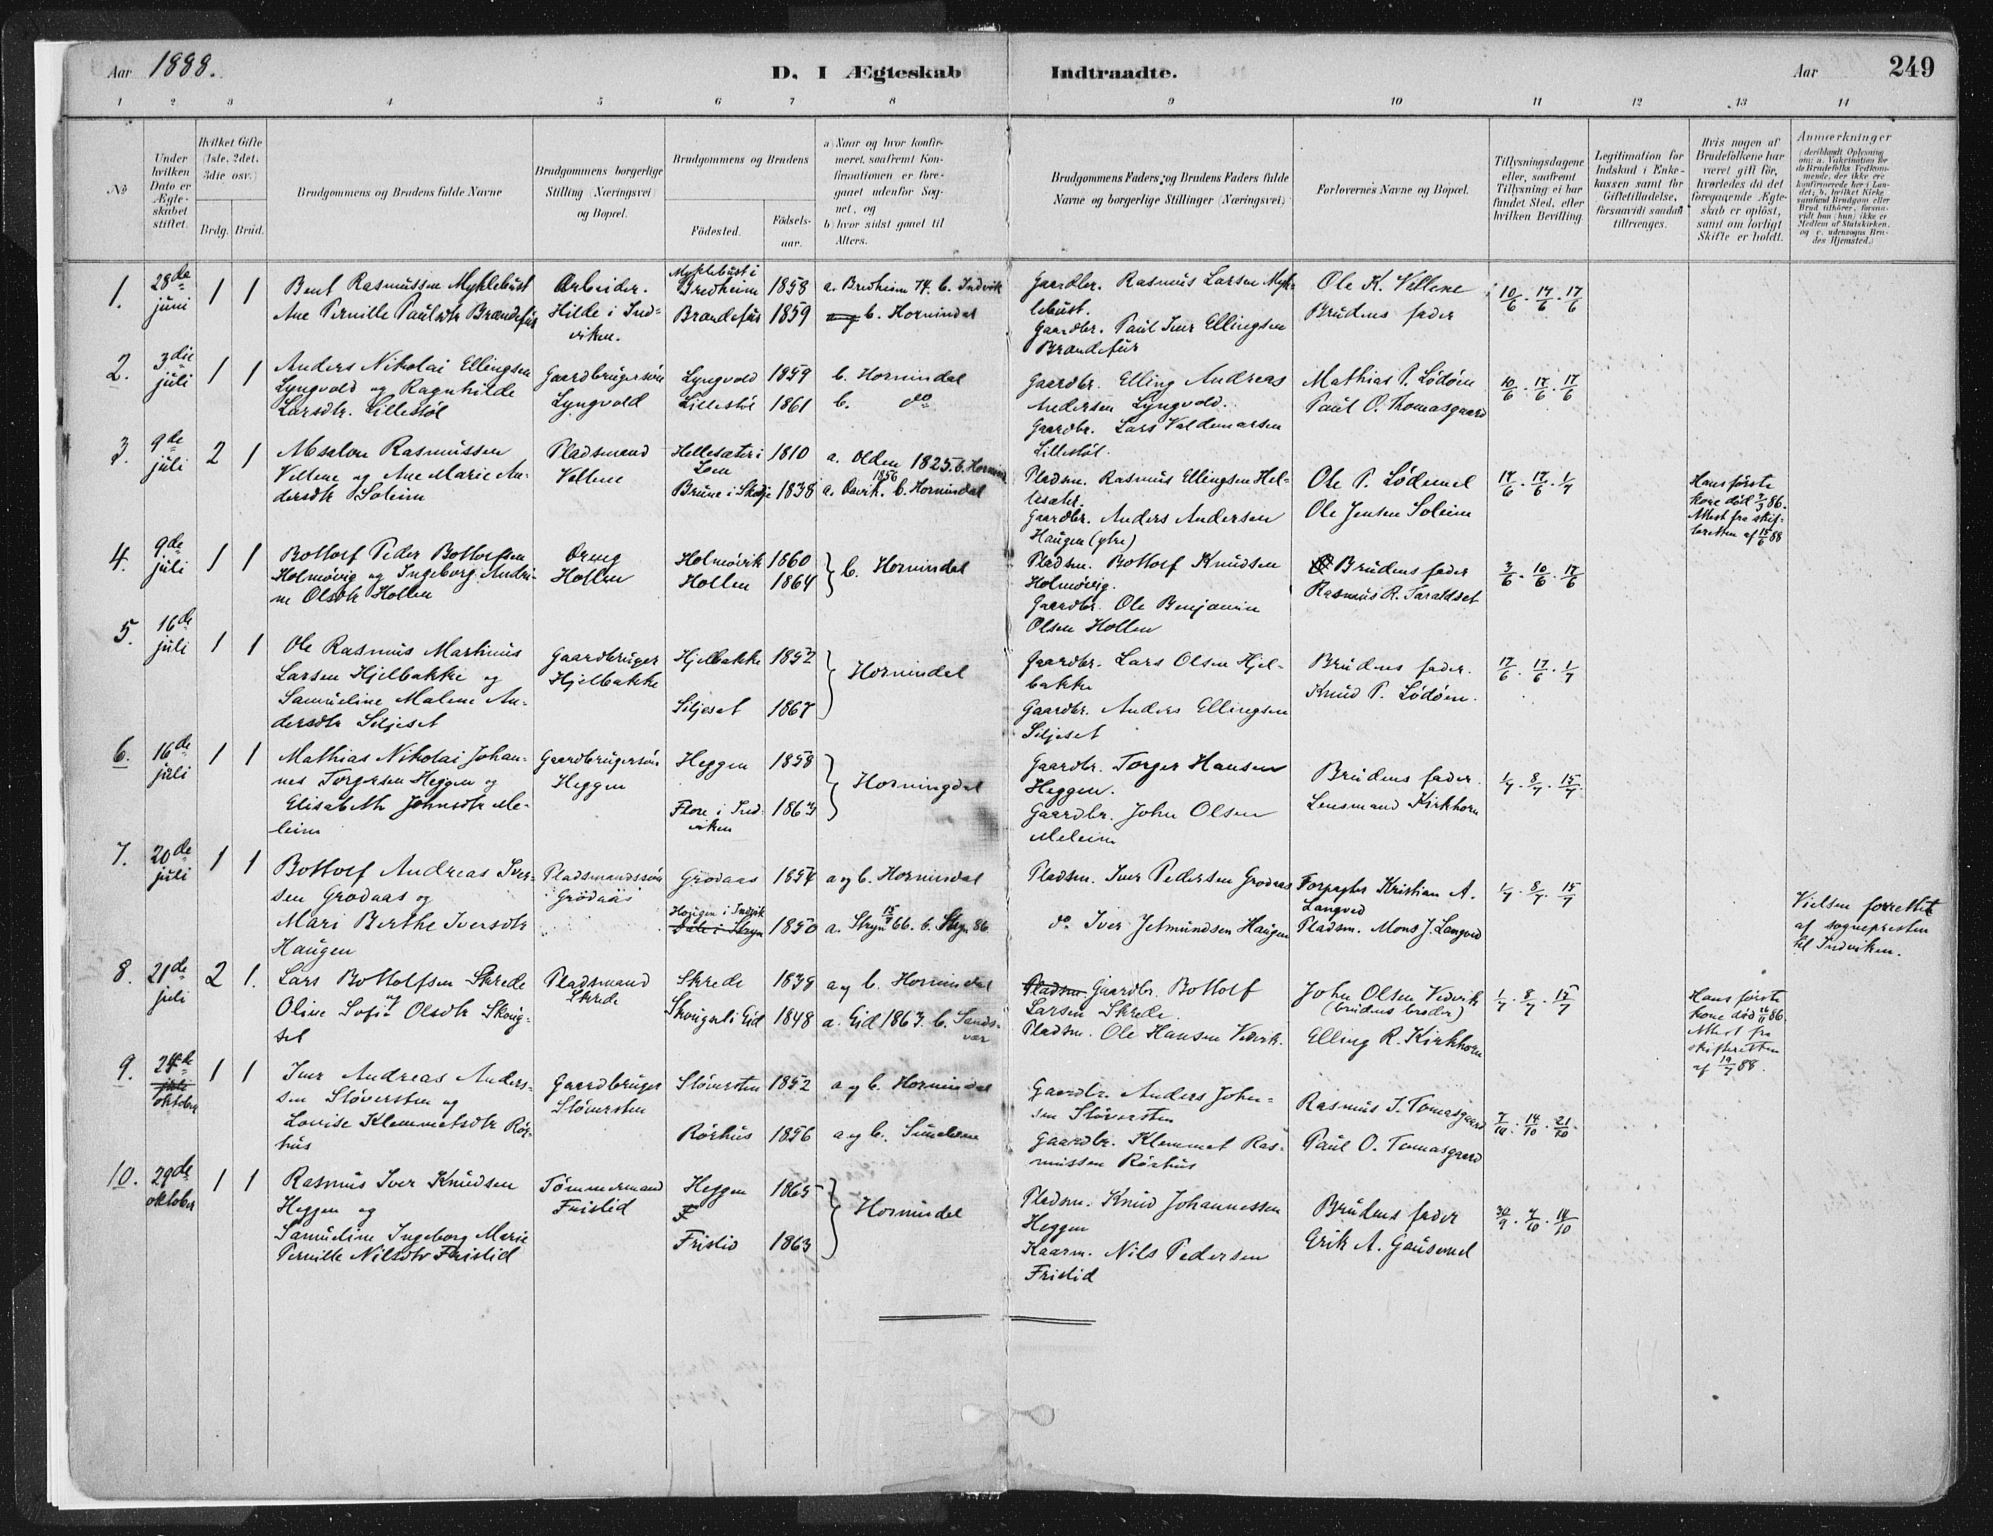 Aar 1888. D. I Ægteskab Indtraadte. Aar 249
1 2 3 4 5 6 7 8 9 10 11 12 13 14
No
Under hvilken Dato er Ægteskabet stiftet.
Hvilket Gifte (1ste, 2det, 3die osv.)
Brdg. Brud.
Brudgommens og Brudens fulde Navne
Brudgommens borgerlige Stilling (Næringsvei) og Bopæl.
Brudgommens og Brudens
Fødested. Fødselsaar.
a) Naar og hvor konfirmeret, saafremt Konfirmationen er foregaaet udenfor Sognet, og
b) hvor sidst gaaet til Alters.
Brudgommens Faders og Brudens Faders fulde Navne og borgerlige Stillinger (Næringsvei)
Forlovernes Navne og Bopæl.
Tillysningsdagene eller, saafremt Tillysning ei har fundet Sted, efter hvilken Bevilling.
Legitimation for Indskud i Enkekassen samt for Giftetilladelse, forsaavidt saadan tiltrænges.
Hvis nogen af Brudefolkene har været gift før, hvorledes da det foregaaende Ægteskab er opløst, samt om lovligt Skifte er holdt.
Anmærkninger
1. 28de juni 1 1
Bent Rasmussen Myklebust
Ane Pernille Paulsdtr Brandefur
Arbeider.
Hilde i Indviken.
Myklebust i Bredheim 1858
Brandefur 1859
a. Bredheim 74. b. Indvik
b. Hornindal
Gaardbr. Rasmus Larsen Myklebust.
Gaardbr. Paul Iver Ellingsen
Brandefur
Ole K. Vellene
Brudens fader
10/6. 17/6. 17/6
2. 3die juli 1 1
Anders Nikolai Ellingsen
Lyngvold og Ragnhilde
Larsdtr. Lillestøl
Gaardbrugersøn
Lyngvold
Lyngvold 1859
Lillestøl 1861
b. Hornindal
b. do
Gaardbr. Elling Andreas
Andersen Lyngvold.
Gaardbr. Lars Valdemarsen
Lillestøl.
Mathias P. Lødøen
Paul O. Thomasgaard
10/6. 17/6. 17/6
3. 9de juli 2 1
Absalon Rasmussen
Vellene og Ane Marie Andersdtr Soleim
Pladsmand
Vellene
Hellesæter i Loen 1810
Brune i Skodje 1838
a. Olden 1825. b. Hornind
a. 1856 b. Hornindal
Pladsm. Rasmus Ellingsen Hellesæter.
Gaardbr. Anders Andersen
Haugen (ytre)
Ole P. Lødemel
Ole Jensen Soleim
17/6. 17/6. 1/7
Hans første
kone død 7/3 86.
Attest fra skifteretten af 15/6 88
4. 9de juli 1 1
Bottolf Peder Bottolfsen
Holmøvig og Ingeborg Andrine Olsdtr Hollen
Dreng
Hollen
Holmøvik 1860
Hollen 1864
b. Hornindal
Pladsm. Bottolf Knudsen
Holmøvig.
Gaardbr. Ole Benjamin
Olsen Hollen
Brudens fader
Rasmus R. Taraldset
3/6. 10/6. 17/6
5. 16de juli 1 1
Ole Rasmus Martinus
Larsen Hjelbakke og
Samueline Malene Andersdtr Siljeset
Gaardbruger
Hjelbakke
Hjelbakke 1852
Siljeset 1867
Hornindal
Gaardbr. Lars Olsen Hjelbakke
Gaardbr. Anders Ellingsen
Siljeset
Brudens fader.
Knud P. Lødøen.
17/6. 17/6. 1/7
6. 16de juli 1 1
Mathias Nikolai Johannes Torgersen Heggen og
Elisabeth Johnsdtr Meleim
Gaardbrugersøn
Heggen
Heggen 1858
Flore i Indviken 1863
Horningdal
Gaardbr. Torger Hansen
Heggen.
Gaardbr. John Olsen
Meleim
Brudens fader.
Lensmand Kirkhorn
1/7. 8/7. 15/7.
7. 20de juli 1 1
Bottolf Andreas Iversen Grodaas og
Mari Berthe Iversdtr
Haugen
Pladsmandssøn
Grodaas
Grodaas 1854
Haugen i Indvik 1850
a og b. Hornindal
a. Stryn 66. b. Stryn 86
Pladsm. Iver Pedersen Grodaas
do Iver Jetmundsen Haugen
Forpagter Kristian A.
Langved
Pladsm. Mons J. Langved
1/7. 8/7. 15/7
Vielsen forrettet
af sognepresten
til Indviken.
8. 21de juli 2 1.
Lars Bottolfsen Skrede
og
Oline Sofie Olsdtr Skougset
Pladsmand
Skrede
Skrede 1839
Skougset i Eid 1848
a og b. Hornindal
a. Eid 1863. b.
Pladsm Gaardbr. Bottolf
Larsen Skrede.
Pladsm. Ole Hansen Vedvik.
John Olsen Vedvik
(brudens broder)
Elling R. Kirkhorn
1/7. 8/7. 15/7
Hans første
kone død 86.
Attest fra
skifteretten
af 19/7 88.
9. 24de oktober 1 1
Iver Andreas Anderssen Støversten og
Lovise Klemmetsdtr Rørhus
Gaardbruger
Støversten
Støversten 1852
Rørhus 1856
a og b. Hornindal
a og b. Sunelven
Gaardbr. Anders Johnsen Støversten
Gaardbr. Klemmet Rasmussen Rørhus
Rasmus J. Tomasgaard
Paul O. Tomasgaard
7/10. 14/10. 21/10.
10. 29de oktober 1 1
Rasmus Iver Knudsen
Heggen og
Samueline Ingeborg Marie
Pernille Nilsdtr Frislid
Tømmermand
Frislid
Heggen 1865
F
Frislid 1863
Hornindal
Pladsm. Knud Johannessen
Heggen
Kaarm. Nils Pedersen
Frislid
Brudens fader
Erik A. Gausemel
30/9. 7/10. 14/10